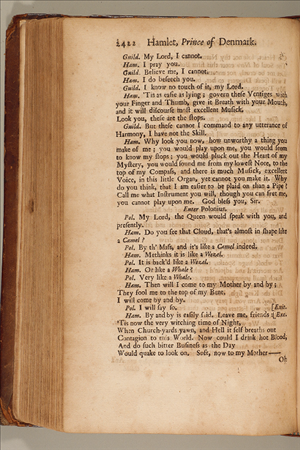 2422 Hamlet, Prince of Denmark.
Guild. My Lord, I cannot.
Ham. I pray you.
Guild. Believe me, I cannot.
Ham. I do beseech you.
Guild. I know no touch of it, my Lord.
Ham. 'Tis as easie as lying; govern these Ventiges with
your Finger and Thumb, give it Breath with your Mouth,
and it will discourse most excellent Musick.
Look you, these are the stops.
Guild. But these cannot I command to any utterance of
Harmony, I have not the Skill.
Ham. Why look you now, how unworthy a thing you
make of me; you would play upon me, you would seem
to know my stops; you would pluck out the Heart of my
Mystery, you would sound me from my lowest Note, to the
top of my Compass, and there is much Musick, excellent
Voice, in this little Organ, yet cannot you make it. Why
do you think, that I am easier to be plaid on than a Pipe?
Call me what Instrument you will, though you can fret me,
you cannot play upon me. God bless you, Sir.
Enter Polonius.
Pol. My Lord, the Queen would speak with you, and
presently.
Ham. Do you see that Cloud, that's almost in shape like
a Camel?
Pol. By th' Mass, and it's like a Camel indeed.
Ham. Methinks it is like a Weazel.
Pol. It is back'd like a Weazel.
Ham. Or like a Whale?
Pol. Very like a Whale.
Ham. Then will I come to my Mother by and by;
They fool me to the top of my Bent.
I will come by and by.
Pol. I will say so. [Exit.
Ham. By and by is easily said. Leave me, friends: [Exe.
'Tis now the very witching time of Night,
When Church-yards yawn, and Hell it self breaths out
Contagion to this World. Now could I drink hot Blood,
And do such bitter Business as the Day
Would quake to look on. Soft, now to my Mother——